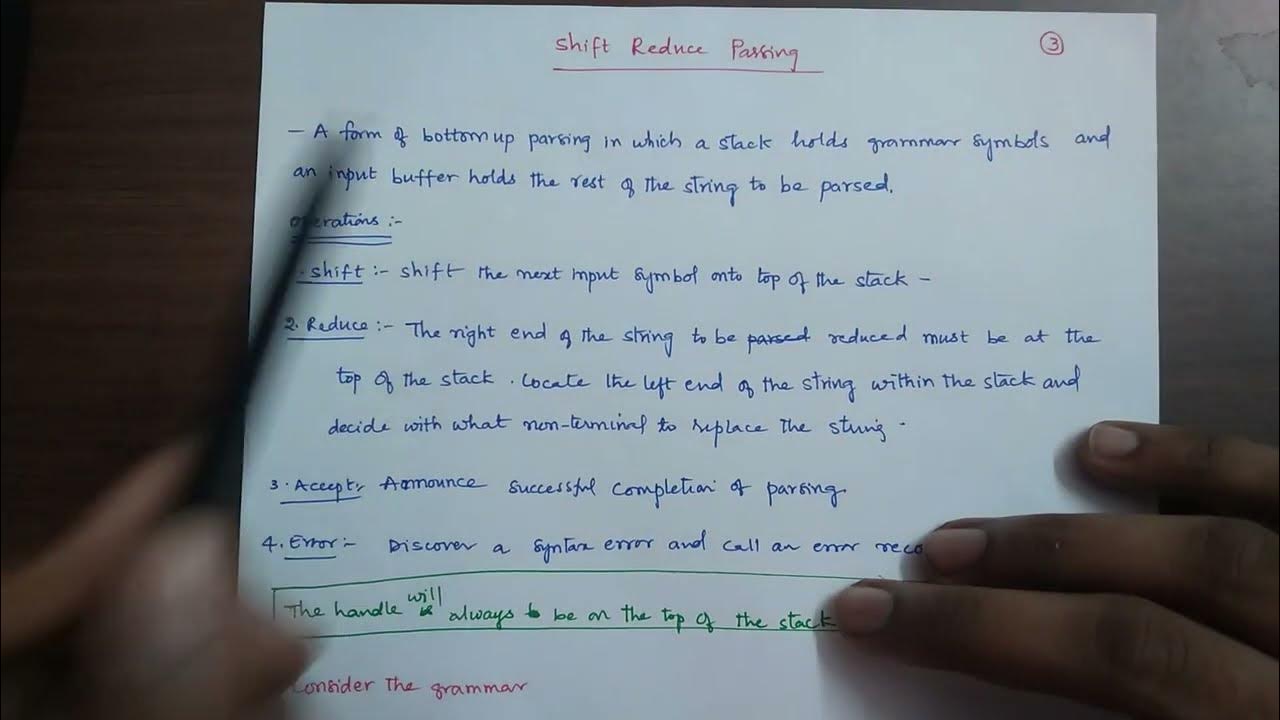 Shift Reduce Parsing
3
- A form of bottom up parsing in which a stack holds grammar symbols and
an input buffer holds the rest of the string to be parsed.
operations :-
. Shift :- shift the next input symbol onto top of the stack -
2. Reduce :- The right end of the string to be parsed reduced must be at the
top of the stack . Locate the left end of the string within the stack and
decide with what non-terminal to replace the string .
3. Accept, Announce successful completion of parsing
4. Error :- Discover a syntax error and call an error reco
The handle will always be on the top of the stack
Consider The grammar